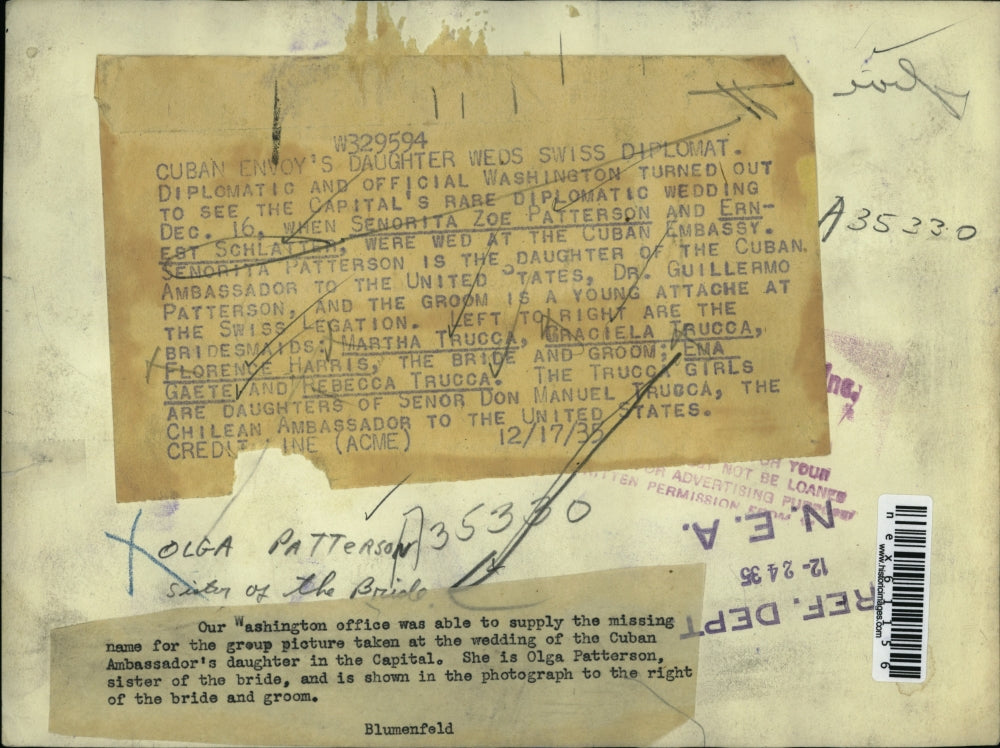 W329594
CUBAN ENVOY'S DAUGHTER WEDS SWISS DIPLOMAT.
DIPLOMATIC AND OFFICIAL WASHINGTON TURNED OUT
TO SEE THE CAPITAL'S RARE DIPLOMATIC WEDDING
DEC. 16, WHEN SENORITA ZOE PATTERSON AND ERN-
EST SCHLATTER, WERE WED AT THE CUBAN EMBASSY.
SENORITA PATTERSON IS THE DAUGHTER OF THE CUBAN
AMBASSADOR TO THE UNITED STATES, DR. GUILLERMO
PATTERSON, AND THE GROOM IS A YOUNG ATTACHE AT
THE SWISS LEGATION. LEFT TO RIGHT ARE THE
BRIDESMAIDS: MARTHA TRUCCA, GRACIELA TRUCCA,
FLORENCE HARRIS, THE BRIDE AND GROOM; EMA
GAETE AND REBECCA TRUCCA. THE TRUCCA GIRLS
ARE DAUGHTERS OF SENOR DON MANUEL TRUCCA, THE
CHILEAN AMBASSADOR TO THE UNITED STATES.
CREDIT LINE (ACME) 12/17/35
A35330
Inc.
OR YOUR
NOT BE LOANED
OR ADVERTISING
WRITTEN PERMISSION FROM
N.E.A.
12-24 35
REF. DEPT
OLGA PATTERSON A35330
Sister of the Bride
Our Washington office was able to supply the missing
name for the group picture taken at the wedding of the Cuban
Ambassador's daughter in the Capital. She is Olga Patterson,
sister of the bride, and is shown in the photograph to the right
of the bride and groom.
Blumenfeld
www.historicimages.com
nex61156